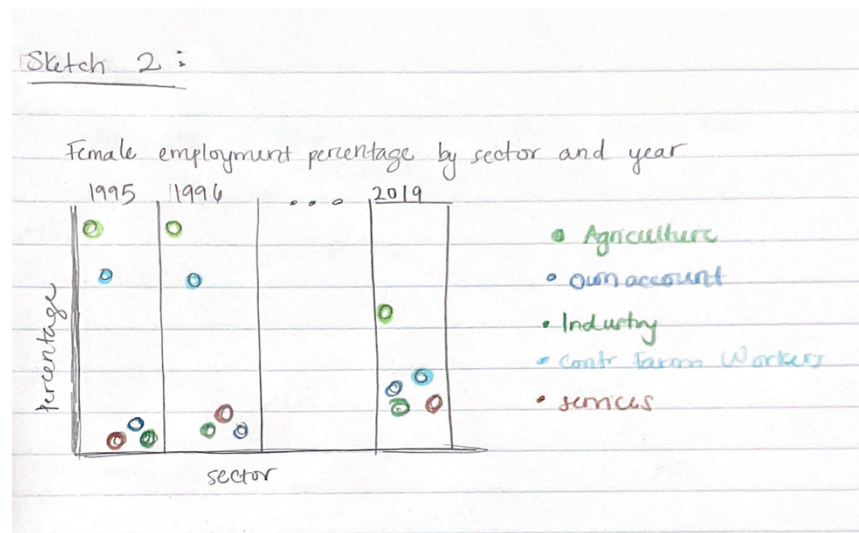 Sketch 2 :
Female employment percentage by sector and year
1995 1996 ... 2019
Percentage
Agriculture
own account
Industry
contr Workers
services
sector